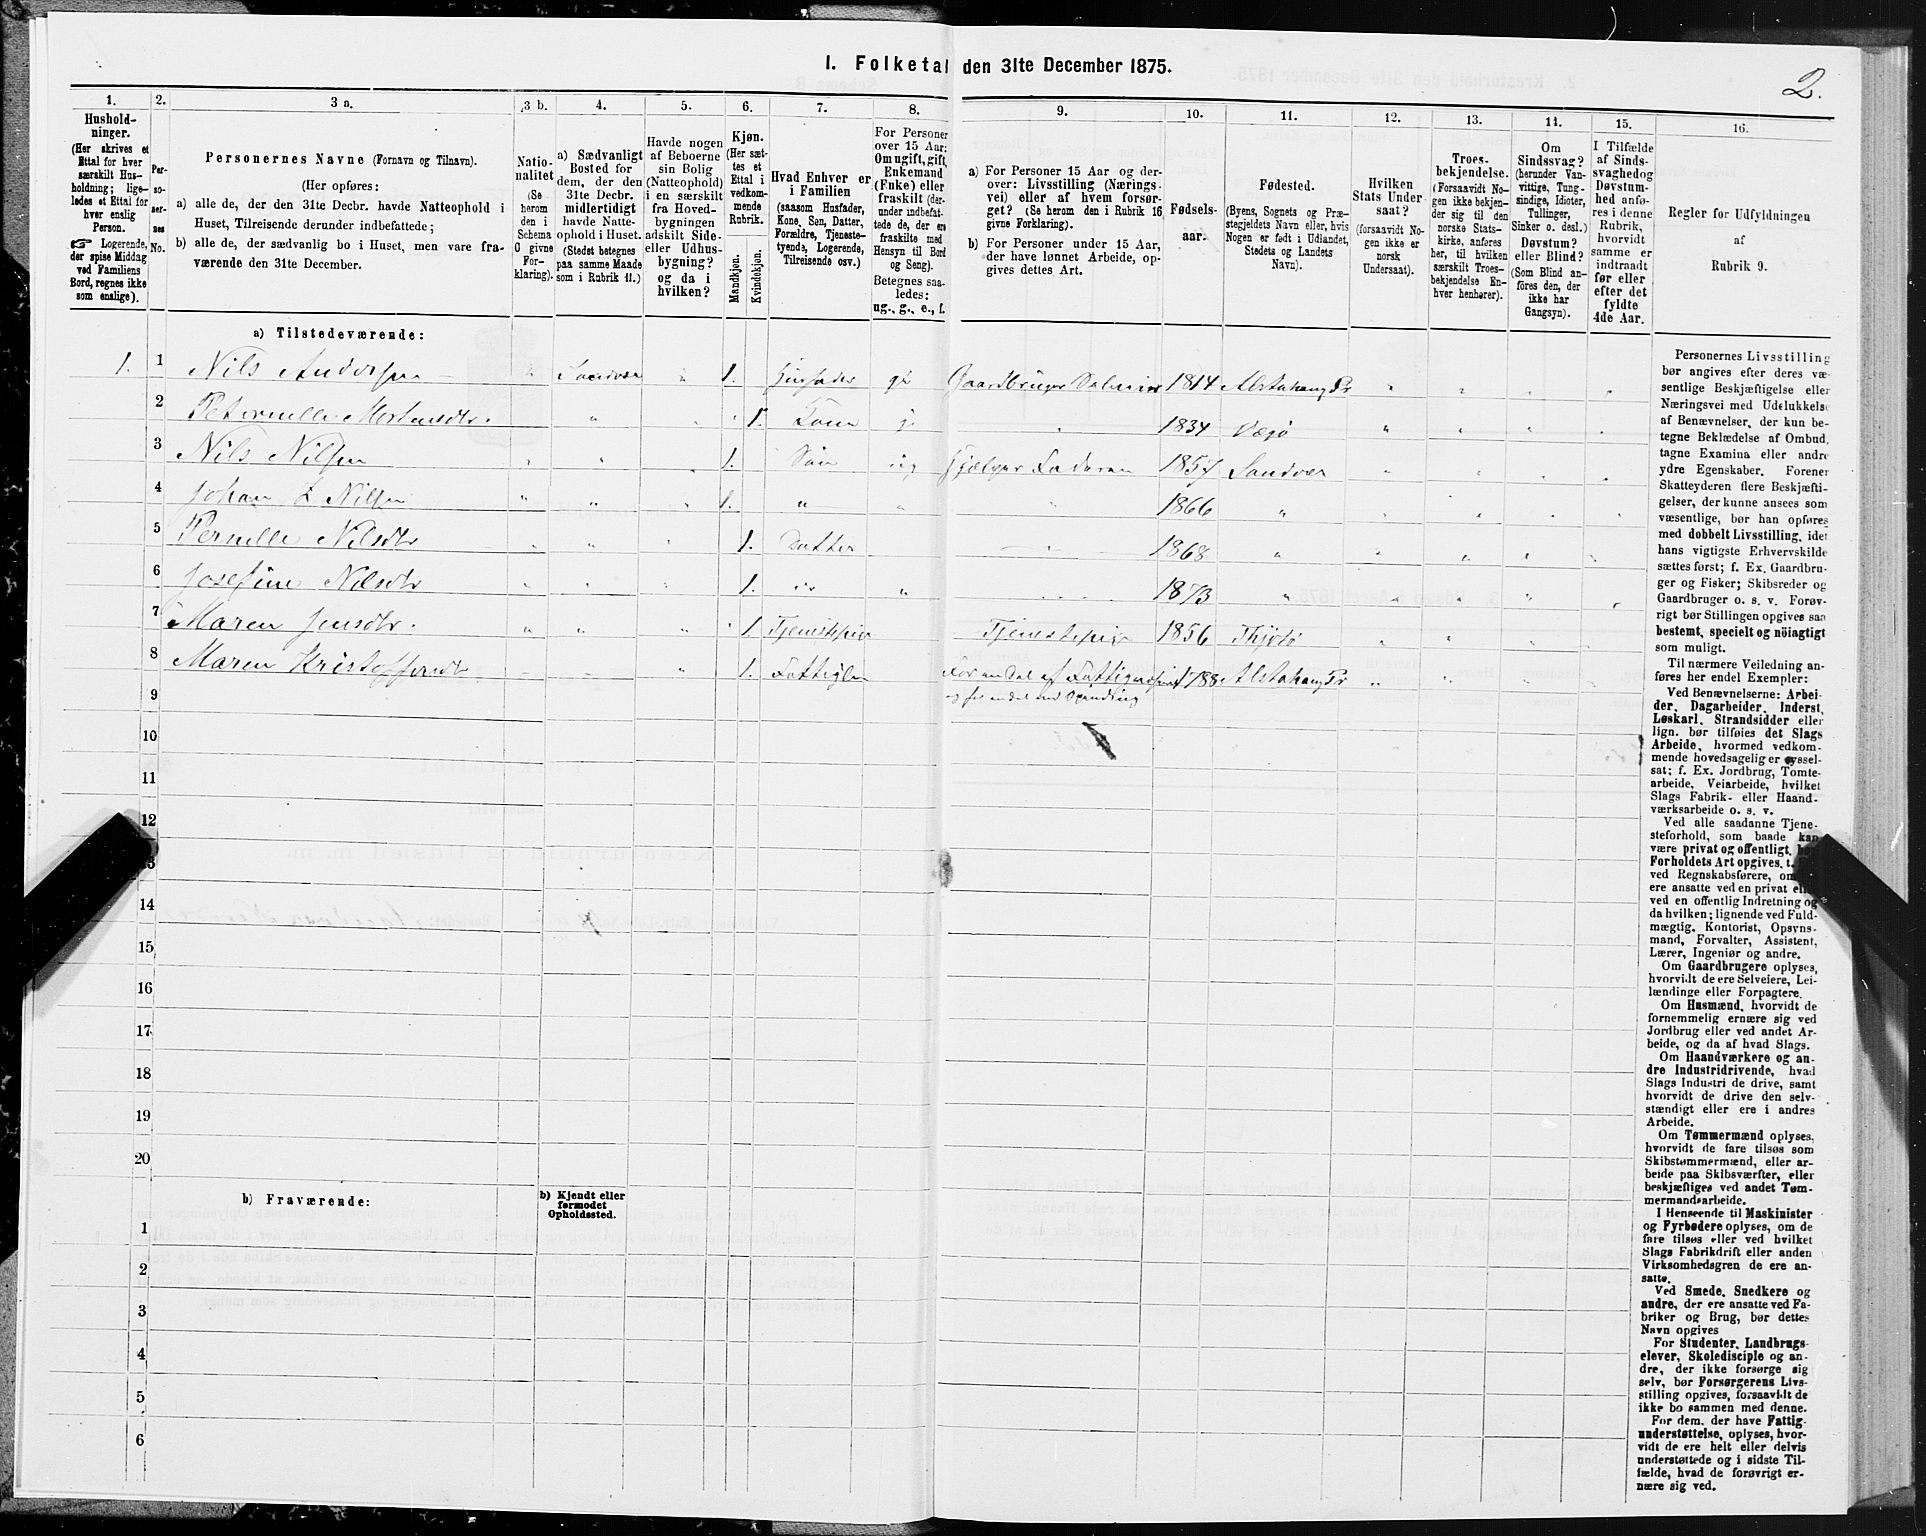 1. Folketal den 31te December 1875.
2.
1. 2. 3 a. 3 b. 4. 5. 6. 7. 8. 9. 10. 11. 12. 13. 14. 15. 16.
Hushold-
ninger.
(Her skrives et
Ettal for hver
særskilt Hus-
holdning; lige-
ledes et Ettal for
hver enslig
Person.
☞ Logerende,
der spise Middag
ved Familiens
Bord, regnes ikke
som enslige).
Per-
so-
ner-
nes
No.
Personernes Navne (Fornavn og Tilnavn).
(Her opføres:
a) alle de, der den 31te Decbr. havde Natteophold i
Huset, Tilreisende derunder indbefattede;
b) alle de, der sædvanlig bo i Huset, men vare fra-
værende den 31te December.
Natio-
nalitet
(Se
herom
den i
Schema
C givne
For-
klaring).
a) Sædvanligt
Bosted for
dem, der den
31te Decbr.
midlertidigt
havde Natte-
ophold i Huset.
(Stedet betegnes
paa samme Maade
som i Rubrik 11.)
Havde nogen
af Beboerne
sin Bolig
(Natteophold)
i en særskilt
fra Hoved-
bygningen
adskilt Side-
eller Udhus-
bygning?
og da i
hvilken?
Kjøn.
(Her sæt-
tes et
Ettal i
vedkom-
mende
Rubrik.
Mandkjøn.
Kvindekjøn.
Hvad Enhver er
i Familien
(saasom Husfader,
Kone, Søn, Datter,
Forældre, Tjeneste-
tyende, Logerende,
Tilreisende osv.)
For Personer
over 15 Aar:
Om ugift, gift,
Enkemand
(Enke) eller
fraskilt (der-
under indbefat-
tede de, der ere
fraskilte med
Hensyn til Bord
og Seng).
Betegnes saa-
ledes:
ug., g., e., f.
a) For Personer 15 Aar og der-
over: Livsstilling (Nærings-
vei) eller af hvem forsør-
get? (Se herom den i Rubrik 16
givne Forklaring).
b) For Personer under 15 Aar,
der have lønnet Arbeide, op-
gives dettes Art.
Fødsels-
aar.
Fødested.
(Byens, Sognets og Præ-
stegjeldets Navn eller, hvis
Nogen er født i Udlandet,
Stedets og Landets
Navn).
Hvilken
Stats Under-
saat?
(forsaavidt No-
gen ikke er
norsk
Undersaat).
Troes-
bekjendelse.
(Forsaavidt No-
gen ikke bekjen-
der sig til den
norske Stats-
kirke, anføres
her, til hvilken
særskilt Troes-
bekjendelse En-
hver henhører).
Om
Sindssvag?
(herunder Van-
vittige, Tung-
sindige, Idioter,
Tullinger,
Sinker o. desl.)
Døvstum?
eller Blind?
(Som Blind an-
föres den, der
ikke har
Gangsyn).
I Tilfælde
af Sinds-
svaghed og
Døvstum-
hed anfø-
res i denne
Rubrik,
hvorvidt
samme er
indtraadt
før eller
efter det
fyldte
4de Aar.
Regler for Udfyldningen
af
Rubrik 9.
a) Tilstedeværende:
1. 1 Nils Andersen " Sandvær " 1. Husfader g Gaardbruger Selveier 1814 Alstahaug Pr " " " "
2 Peternelle Mortensdtr. " " " 1. Kone g " 1834 Vegø " " " "
3 Nils Nilsen " " " 1. Søn ug Hjælper Faderen 1857 Sandvær " " " "
4 Johan L Nilsen " " " 1. " " " 1866 " " " " "
5 Pernille Nilsdtr " " " 1. Datter " 1868 " " " " "
6 Josefine Nilsdtr " " " 1. " " " 1873 " " " " "
7 Maren Jensdtr. " " " 1. Tjenestepige Tjenestepige 1856 Thjøtø " " " "
8 Maren Kristoffersdtr " " " 1. Fattiglem For en Del af Fattigvæsenet 1788 Alstahaug Pr " " " "
og for en del ved Spinding
9
10
11
12
13
14
15
16
17
18
19
20
b) Fraværende:
b) Kjendt eller
formodet
Opholdssted.
1
2
3
4
5
6
Personernes Livsstilling
bør angives efter deres væ-
sentlige Beskjæftigelse eller
Næringsvei med Udelukkelse
af Benævnelser, der kun be-
tegne Beklædelse af Ombud,
tagne Examina eller andre
ydre Egenskaber. Forener
Skatteyderen flere Beskjæfti-
gelser, der kunne ansees som
væsentlige, bør han opføres
med dobbelt Livsstilling, idet
hans vigtigste Erhvervskilde
sættes først; f. Ex. Gaardbru-
ger og Fisker; Skibsreder og
Gaardbruger o. s. v. Forøv-
rigt bør Stillingen opgives saa
bestemt, specielt og nöiagtigt
som muligt.
Til nærmere Veiledning an-
føres her endel Exempler:
Ved Benævnelserne: Arbei-
der, Dagarbeider, Inderst,
Løskarl, Strandsidder eller
lign. bør tilføies det Slags
Arbeide, hvormed vedkom-
mende hovedsagelig er syssel-
sat; f. Ex. Jordbrug, Tomte-
arbeide, Veiarbeide, hvilket
Slags Fabrik- eller Haand-
værksarbeide o. s. v.
Ved alle saadanne Tjene-
steforhold, som baade kan
være privat og offentligt,
Forholdets Art opgives, t.
ved Regnskabsførere, om
ere ansatte ved en privat
ved en offentlig Indretning og
da hvilken; lignende ved Fuld-
mægtig, Kontorist, Opsyns-
mand, Forvalter, Assistent,
Lærer, Ingeniør og andre.
Om Gaardbrugere oplyses,
hvorvidt de ere Selveiere, Lei-
lændinge eller Forpagtere.
Om Husmænd, hvorvidt de
fornemmelig ernære sig ved
Jordbrug eller ved andet Ar-
beide, og da af hvad Slags.
Om Haandværkere og an-
dre Industridrivende, hvad
Slags Industri de drive, samt
hvorvidt de drive den selv-
stændigt eller ere i andres
Arbeide.
Om Tømmermænd oplyses,
hvorvidt de fare tilsøs som
Skibstømmermænd, eller ar-
beide paa Skibsværfter, eller
beskjæftiges ved andet Tøm-
mermandsarbeide.
I Henseende til Maskinister
og Fyrbødere oplyses, om de
fare tilsøs eller ved hvilket
Slags Fabrikdrift eller anden
Virksomhedsgren de ere an-
satte.
Ved Smede, Snedkere og
andre, der ere ansatte ved Fa-
briker og Brug, bør dettes
Navn opgives
For Studenter, Landbrugs-
elever, Skoledisciple og an-
dre, der ikke forsørge sig
selv, bør Forsørgerens Livs-
stilling opgives, forsaavidt de
ikke bo sammen med denne.
For dem, der have Fattig-
understøttelse, oplyses, hvor-
vidt de ere helt eller delvis
understøttede og i sidste Til-
fælde, hvad de forøvrigt er-
nære sig ved.